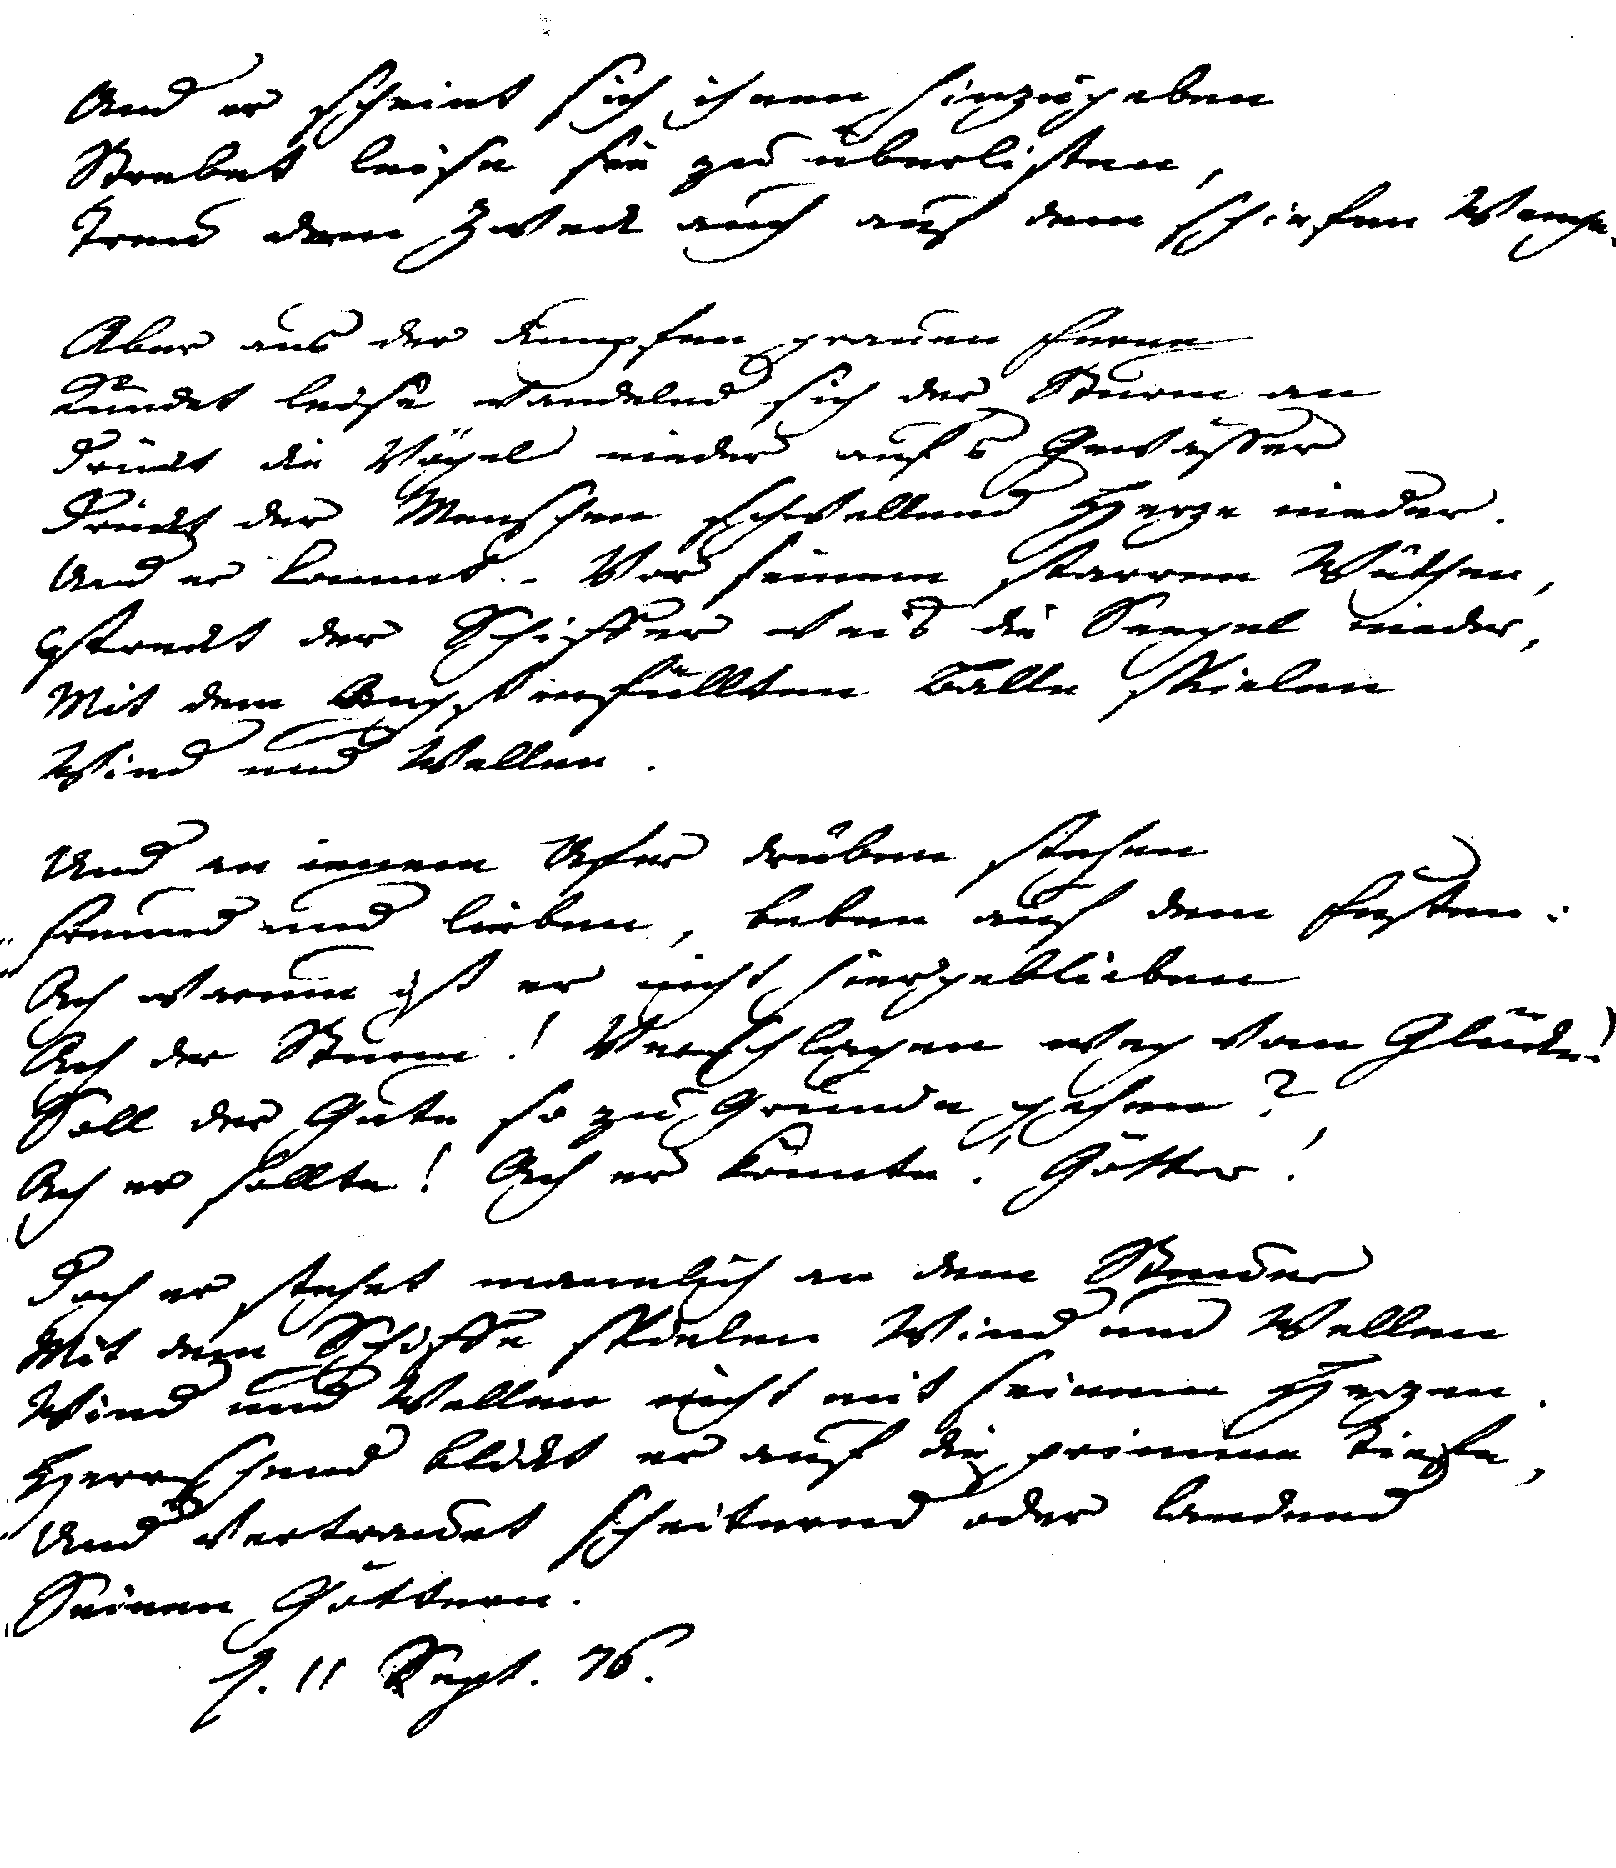 Und er scheint sich ihnen hinzugeben
Strebet leise sie zu überlisten,
Treu dem Zweck auch auf dem schiefen Weege.
Aber aus der dumpfen grauen Ferne
Kündet leise wandelnd sich der Sturm an
Drückt die Vögel nieder aufs Gewässer
Drückt der Menschen schwellend Herze nieder.
Und er kommt. - Vor seinem starren Wüthen,
streckt der Schiffer weis die Seegel nieder,
Mit dem Angsterfüllten Balle spielen
Wind und Wellen.
Und an ienem Ufer drüben stehen
Freund und lieben, beben auf dem Festen:
Ach warum ist er nicht hiergeblieben
Ach der Sturm! Verschlagen weg vom Glücke!
Soll der Gute so zu Grunde gehen?
Ach er sollte! Ach er könnte! Götter!
Doch er stehet männlich an dem Steuer
Mit dem Schiffe spielen Wind und Wellen
Wind und Wellen nicht mit seinem Herzen.
Herrschend blickt er auf die grimme Tiefe,
Und vertrauet scheiternd oder landend
Seinen Göttern.
11 Sept. 76.